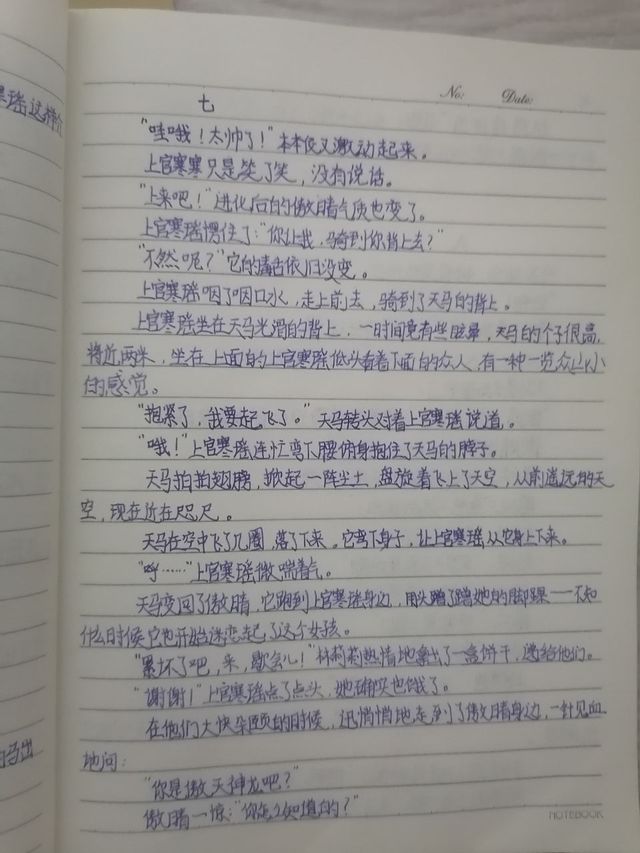 No:    Date:
七
"哇哦！太帅了！"本本俊又激动起来。
上官寒寒只是笑了笑，没有说话。
"上来吧！"进化后的傲晴气质也变了。
上官寒瑶愣住了："你让我，骑到你背上去？"
"不然呢？"它的毒舌依旧没变。
上官寒瑶咽了咽口水，走上前去，骑到了天马的背上。
上官寒瑶坐在天马光滑的背上，一时间竟有些眩晕，天马的个子很高，
将近两米，坐在上面的上官寒瑶低头看着下面的众人，有一种一览众山小
的感觉。
"抱紧了，我要起飞了。"天马转头对着上官寒瑶说道。
"哦！"上官寒瑶连忙弯下腰俯身抱住了天马的脖子。
天马拍拍翅膀，掀起一阵尘土，盘旋着飞上了天空，从前遥远的天
空，现在近在咫尺。
天马在空中飞了几圈，落了下来。它弯下身子，让上官寒瑶从它身上下来。
"呼……"上官寒瑶微喘着气。
天马变回了傲晴，它跑到上官寒瑶身边，用头蹭了蹭她的脚踝——不知
什么时候它也开始迷恋起了这个女孩。
"累坏了吧，来，歇会儿！"林莉莉热情地拿出了一盒饼干，递给他们。
"谢谢！"上官寒瑶点了点头，她确实也饿了。
在他们大快朵颐的时候，迅悄悄地走到了傲晴身边，一针见血
地问：
"你是傲天神龙吧？"
傲晴一惊："你怎么知道的？"
NOTEBOOK